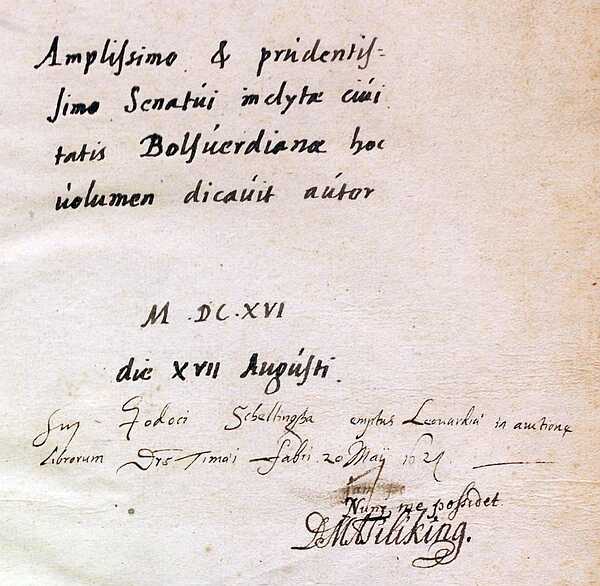 Amplissimo & prudentis-
simo Senatúi inclytæ ciúi
tatis Bolsúerdianæ hoc
úolumen dicaúit aútor
M DC.XVI
die XVII Augústi.
Sum Jodoci Schellingha emptus Leouardiæ in auctione
librorum Drs Timæi Fabri 20 Maÿ
Nunc me possidet